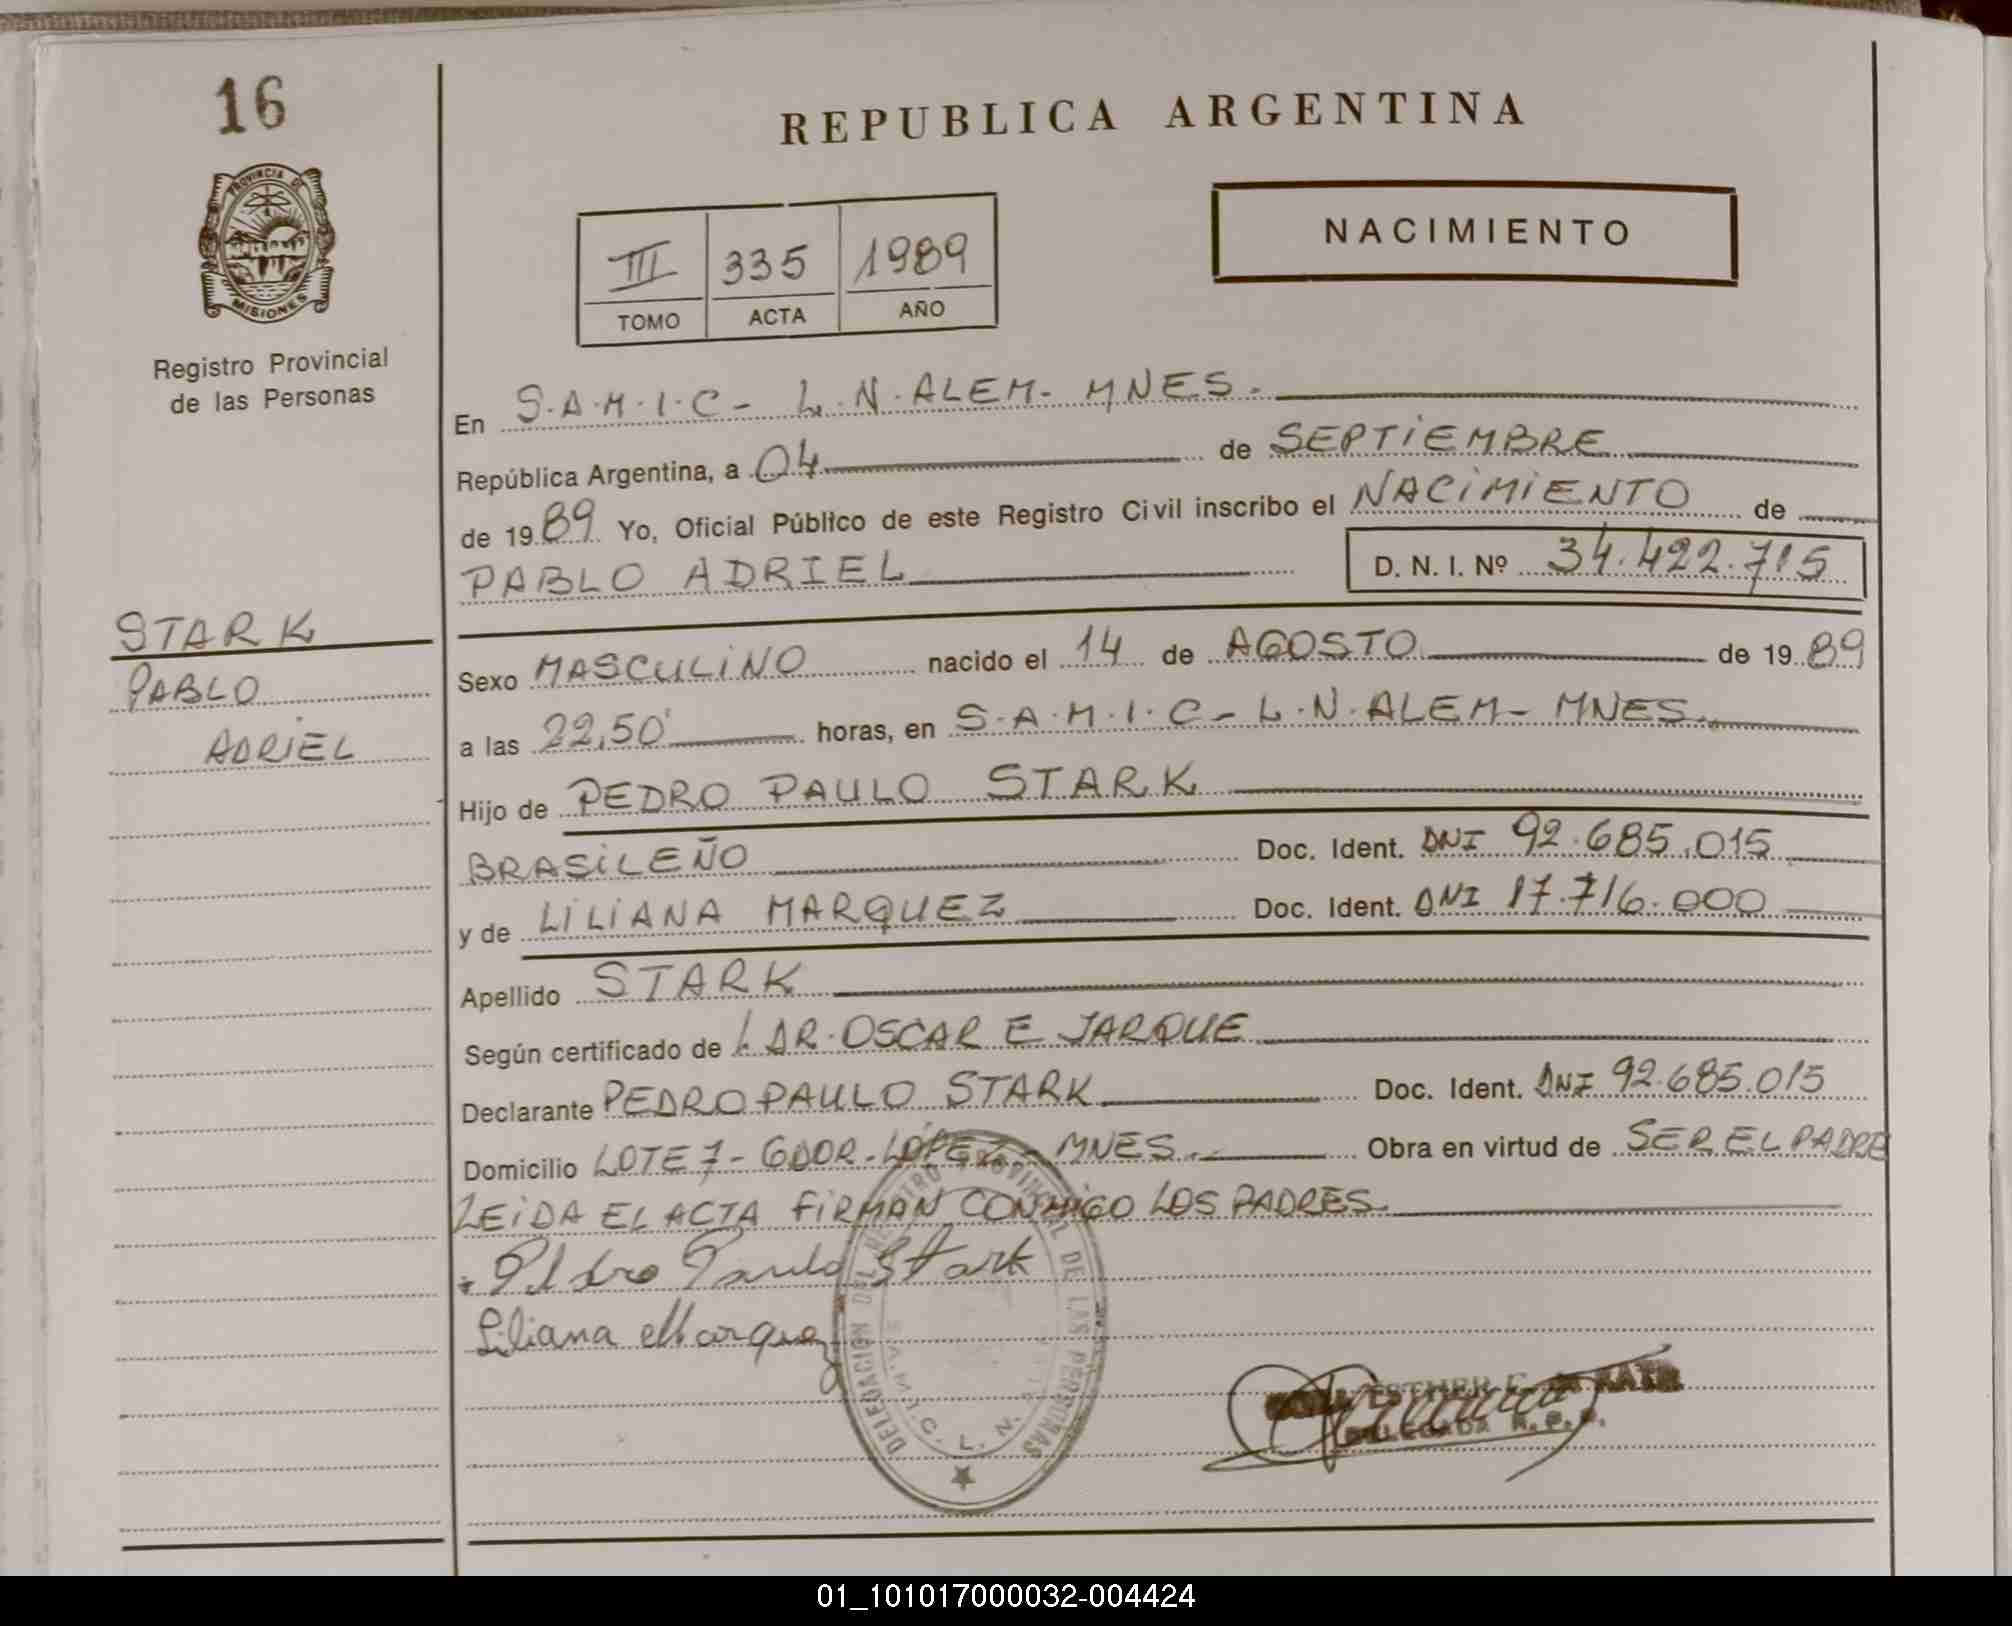 16
REPUBLICA ARGENTINA
PROVINCIA DE
MISIONES
Registro Provincial
de las Personas
III 335 1989
TOMO ACTA AÑO
NACIMIENTO
En S.A.M.I.C - L.N. ALEM - MNES.
República Argentina, a 04 de SEPTIEMBRE
de 1989 Yo, Oficial Público de este Registro Civil inscribo el NACIMIENTO de
PABLO ADRIEL D. N. I. Nº 34.422.715
STARK
PABLO
ADRIEL
Sexo MASCULINO nacido el 14 de AGOSTO de 1989
a las 22,50 horas, en S.A.M.I.C - L.N. ALEM - MNES.
Hijo de PEDRO PAULO STARK
BRASILEÑO Doc. Ident. DNI 92.685.015
y de LILIANA MARQUEZ Doc. Ident. DNI 17.716.000
Apellido STARK
Según certificado de L DR. OSCAR E JARQUE
Declarante PEDRO PAULO STARK Doc. Ident. DNI 92.685.015
Domicilio LOTE 7 - GDOR. LÓPEZ - MNES. Obra en virtud de SER EL PADRE
LEIDA EL ACTA FIRMAN CONMIGO LOS PADRES.
Pedro Paulo Stark
Liliana Marquez
DELEGACION DEL REGISTRO PROVINCIAL DE LAS PERSONAS
S.A.M.I.C. L. N.
ESTHER
DELEGADA R.P.P.
01_101017000032-004424